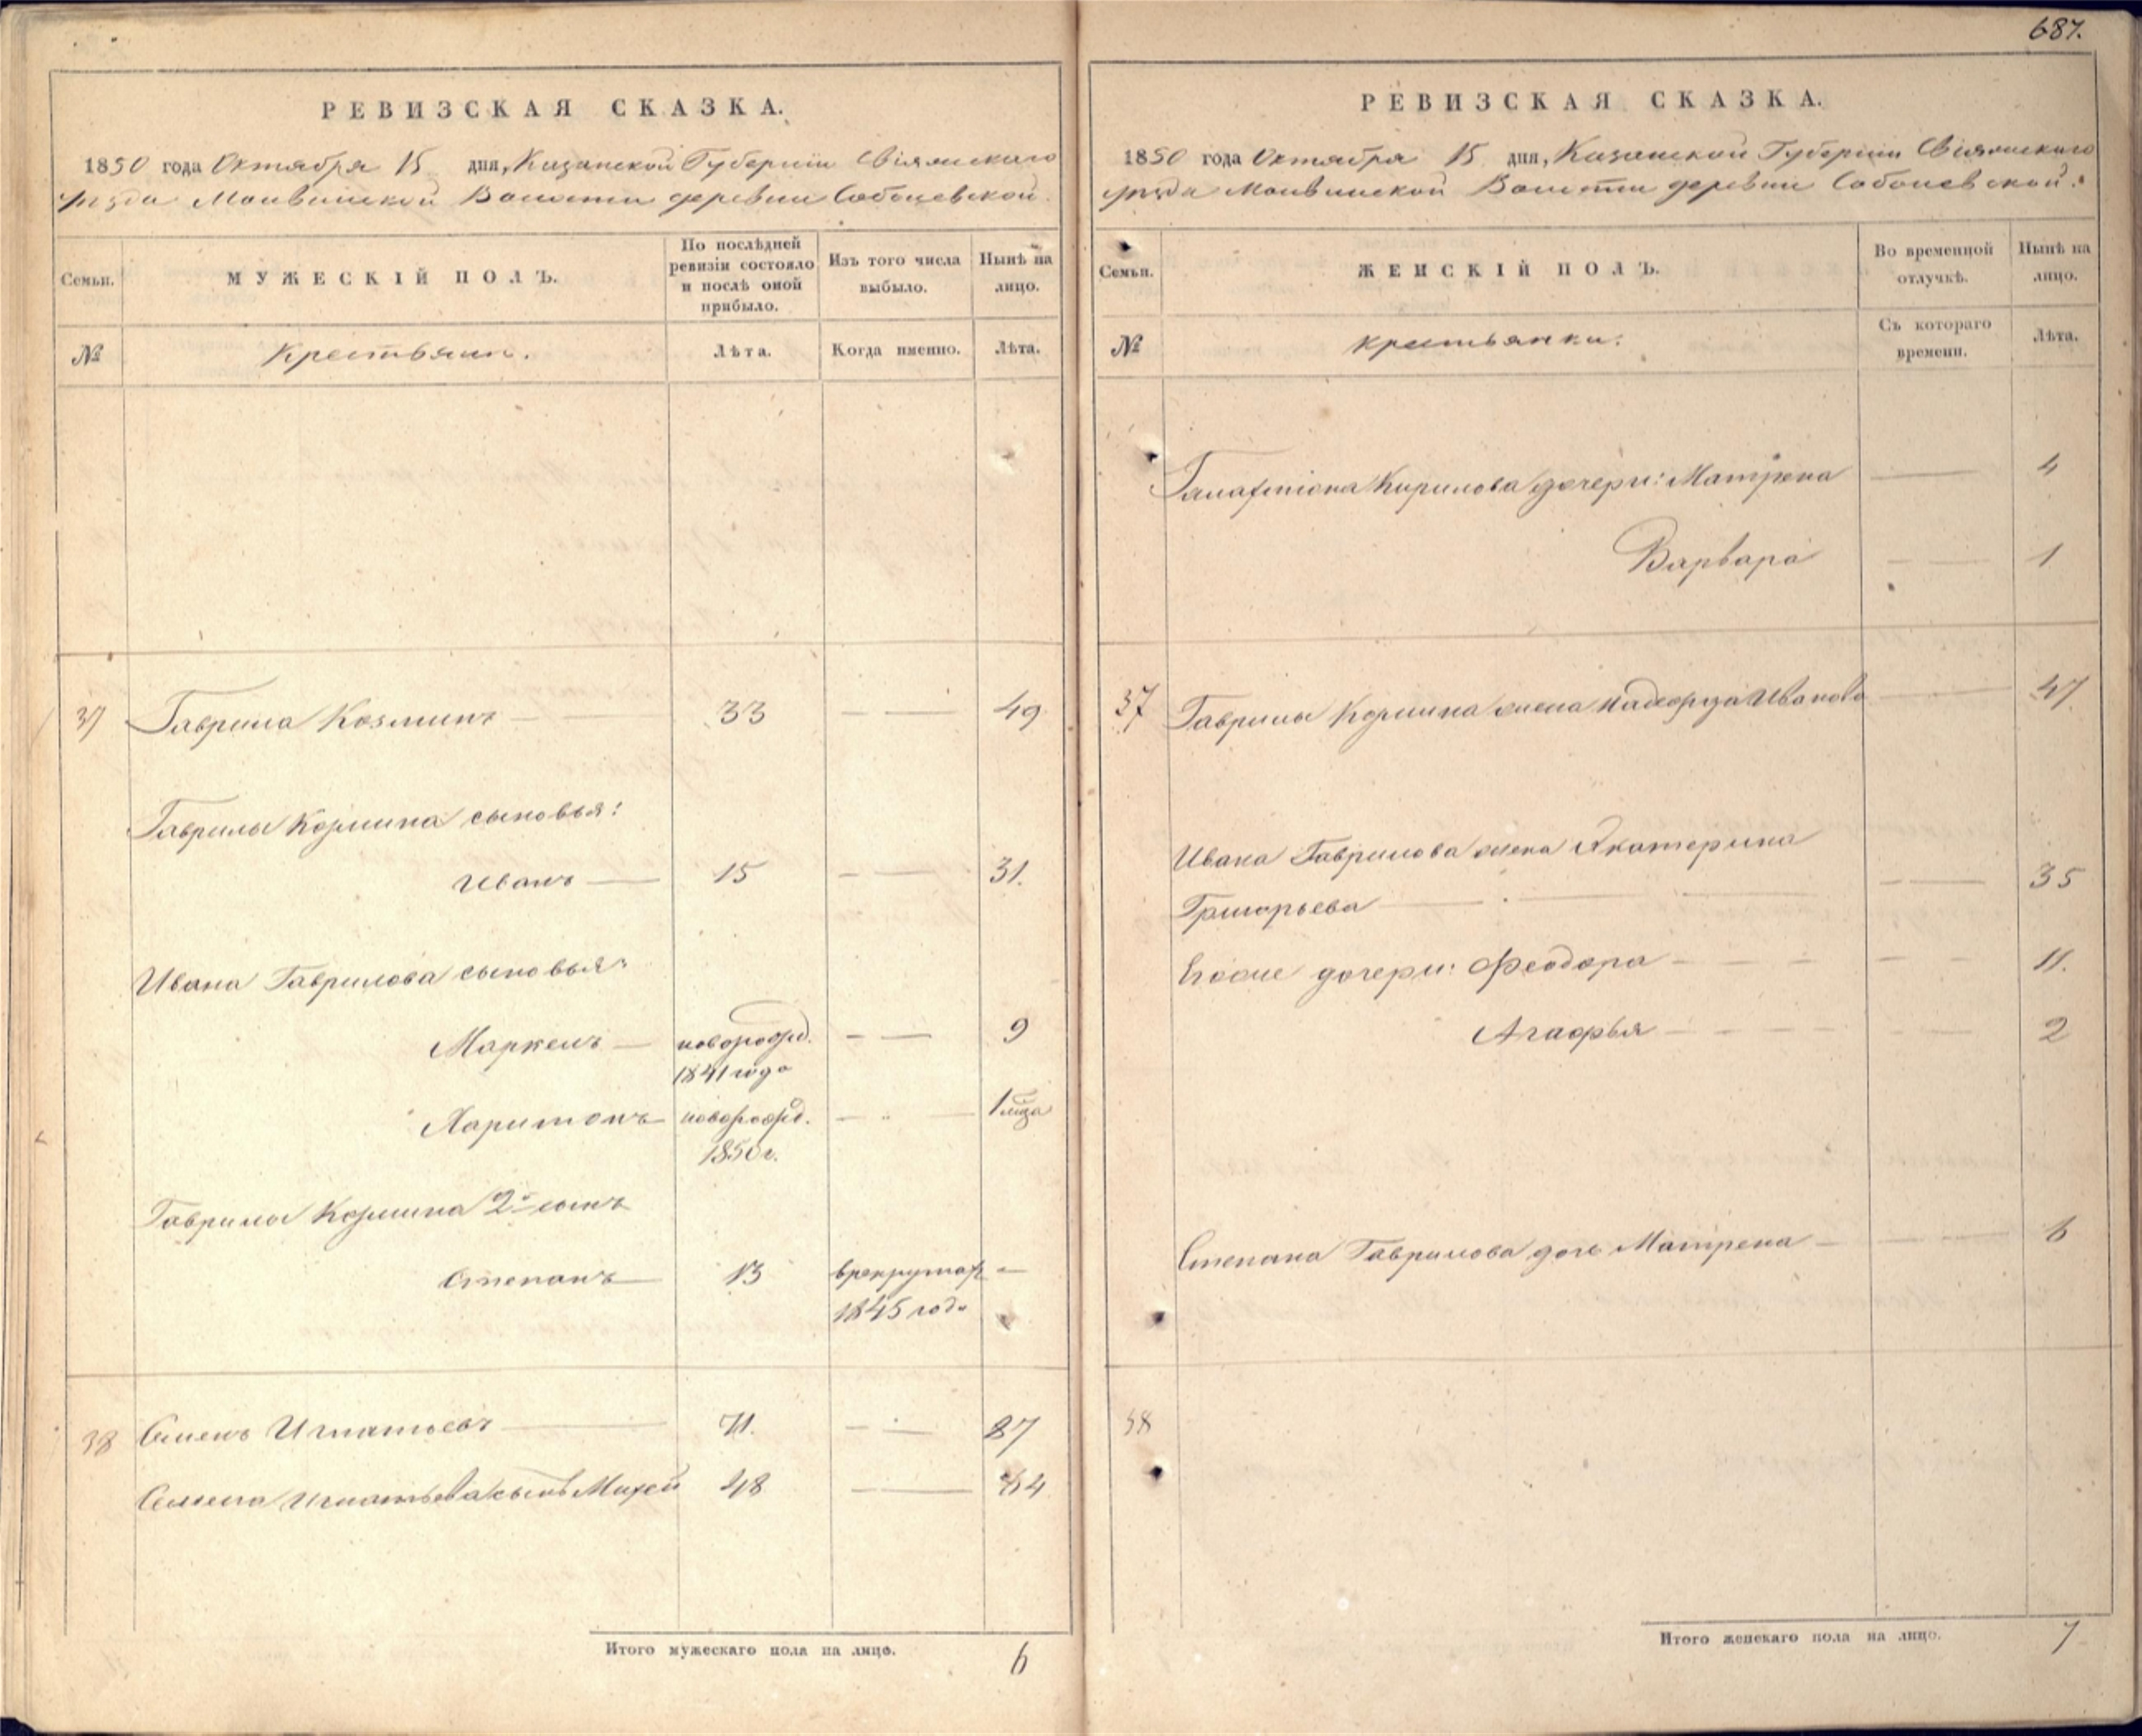 687.
РЕВИЗСКАЯ СКАЗКА.
1850 года Октября 15 дня, Казанской Губернiи Свiяжскаго
уезда Волости деревни Соболевской.
Семьи.
МУЖЕСКIЙ ПОЛЪ.
По послѣдней
ревизiи состояло
и послѣ оной
прибыло.
Изъ того числа
выбыло.
Нынѣ на
лицо.
№
Крестьяне.
Лѣта.
Когда именно.
Лѣта.
37 Гаврила Козминъ — 33 — — 49
Гаврилы Козмина сыновья:
Иванъ — 15 — — 31.
Ивана Гаврилова сыновья:
Маркелъ — новорожд. — — 9
1841 года
Харитонъ новорожд. — — 1 мѣца
1850 г.
Гаврилы Козмина 2й сынъ
Степанъ — 13 в рекрутах —
1845 года
38 Семенъ Игнатьевъ — 71. — — 87
Семена Игнатьева сынъ Михей 48 — 64
Итого мужескаго пола на лицо. 6
РЕВИЗСКАЯ СКАЗКА.
1850 года Октября 15 дня, Казанской Губернiи Свiяжскаго
уезда Волости деревни Соболевской.
Семьи.
ЖЕНСКIЙ ПОЛЪ.
Во временной
отлучкѣ.
Нынѣ на
лицо.
№
крестьянки.
Съ котораго
времени.
Лѣта.
Кирилова дочери: Матрена — 4
Варвара — — 1
37 Гаврилы Козмина жена Иванова — — 47
Ивана Гаврилова жена Екатерина
Григорьева — — 35
Егоже дочери: Феодора — — 11.
Агафья — — 2
Степана Гаврилова дочь Матрена — — 6
38
Итого женскаго пола на лицо. 7